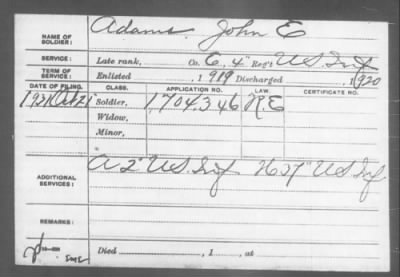 NAME OF SOLDIER: Adams, John E
SERVICE: Late rank, Co. G, 4" Reg't U.S. Inf
TERM OF SERVICE: Enlisted , 1919 Discharged , 1920
DATE OF FILING. CLASS. APPLICATION NO. LAW. CERTIFICATE NO.
1931 Oct 21 Soldier, 1,704,346 R.E
Widow,
Minor,
ADDITIONAL SERVICES: A 2" U.S. Inf H 37" U.S. Inf
REMARKS:
Died , 1 , at